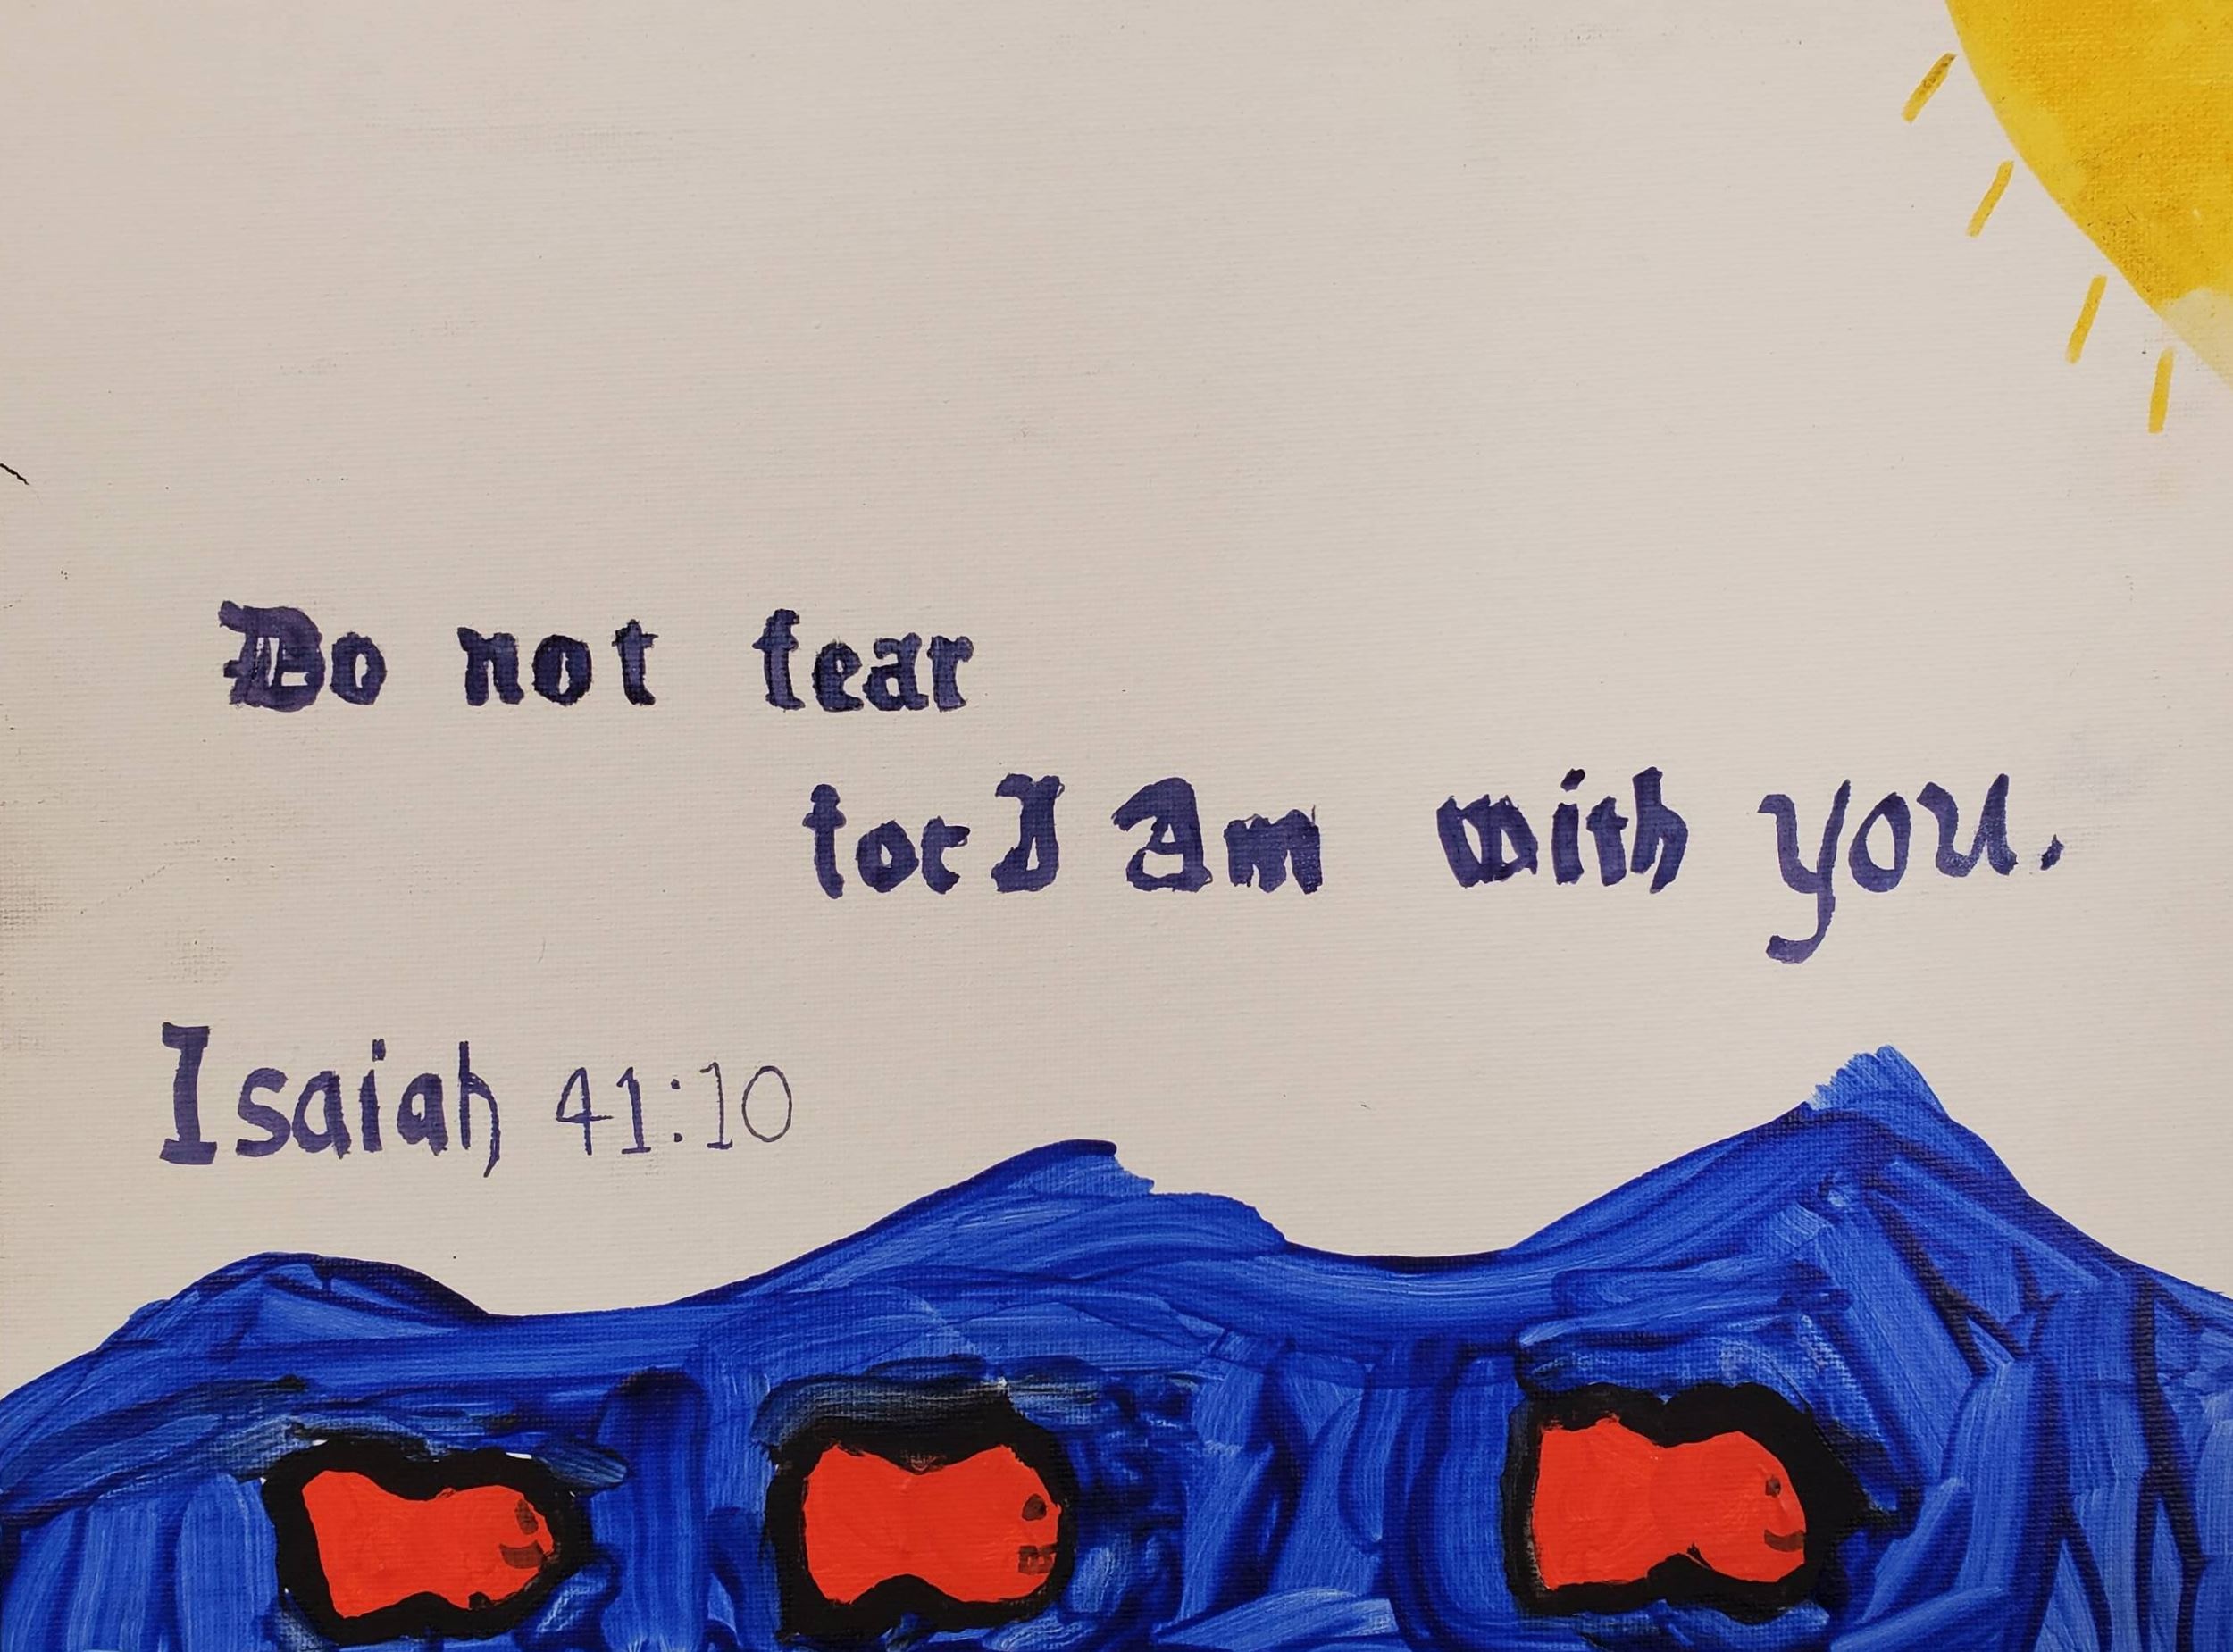 Do not fear
for I Am with you.
Isaiah 41:10